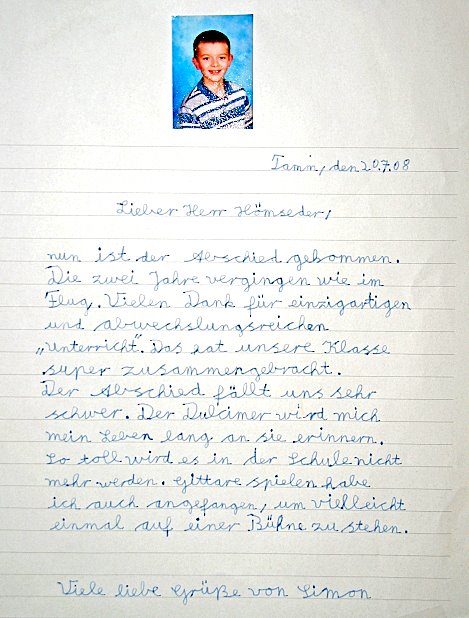 Tamm, den 20.7.08
Lieber Herr Hömseder,
nun ist der Abschied gekommen.
Die zwei Jahre vergingen wie im
Flug. Vielen Dank für einzigartigen
und abwechslungsreichen
„Unterricht". Das hat unsere Klasse
super zusammengebracht.
Der Abschied fällt uns sehr
schwer. Der Dulcimer wird mich
mein Leben lang an sie erinnern.
So toll wird es in der Schule nicht
mehr werden. Gittare spielen habe
ich auch angefangen, um vielleicht
einmal auf einer Bühne zu stehen.
Viele liebe Grüße von Simon